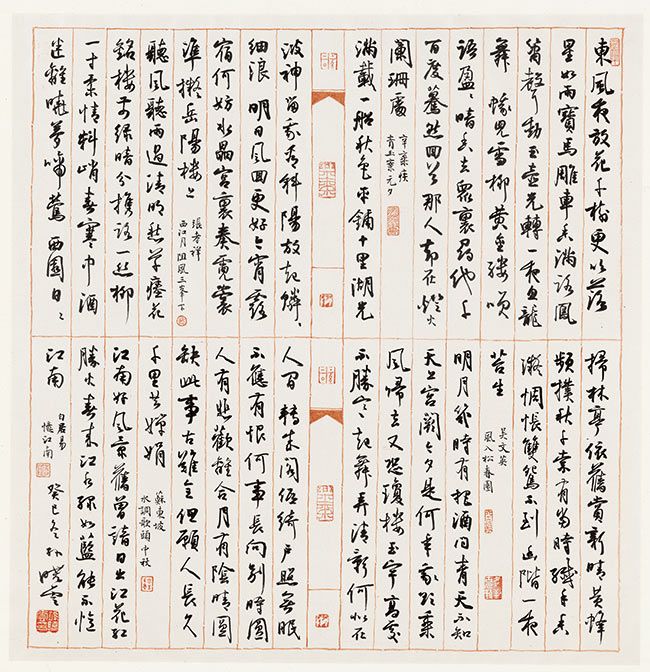 東風夜放花千樹更吹落
星如雨寶馬雕車香滿路鳳
簫聲動玉壺光轉一夜魚龍
舞 蛾兒雪柳黃金縷笑
語盈盈暗香去眾裏尋他千
百度驀然回首那人卻在燈火
闌珊處
辛棄疾
青玉案元夕
滿載一船秋色平鋪十里湖光
波神留我看斜陽放起鱗鱗
細浪 明日風回更好今宵露
宿何妨水晶宮裏奏霓裳
準擬岳陽樓上
張孝祥
西江月阻風三峯下
聽風聽雨過清明愁草瘞花
銘樓前綠暗分攜路一絲柳
一寸柔情料峭春寒中酒
迷離曉夢啼鶯 西園日日
掃林亭依舊賞新晴黃蜂
頻撲秋千索有當時纖手香
凝惆悵雙鴛不到幽階一夜
苔生
吳文英
風入松春園
明月幾時有把酒問青天不知
天上宮闕今夕是何年我欲乘
風歸去又恐瓊樓玉宇高處
不勝寒起舞弄清影何似在
人間 轉朱閣低綺戶照無眠
不應有恨何事長向別時圓
人有悲歡離合月有陰晴圓
缺此事古難全但願人長久
千里共嬋娟
蘇東坡
水調歌頭 中秋
江南好風景舊曾諳日出江花紅
勝火春來江水綠如藍能不憶
江南
白居易
憶江南
癸巳冬 孫曉雲